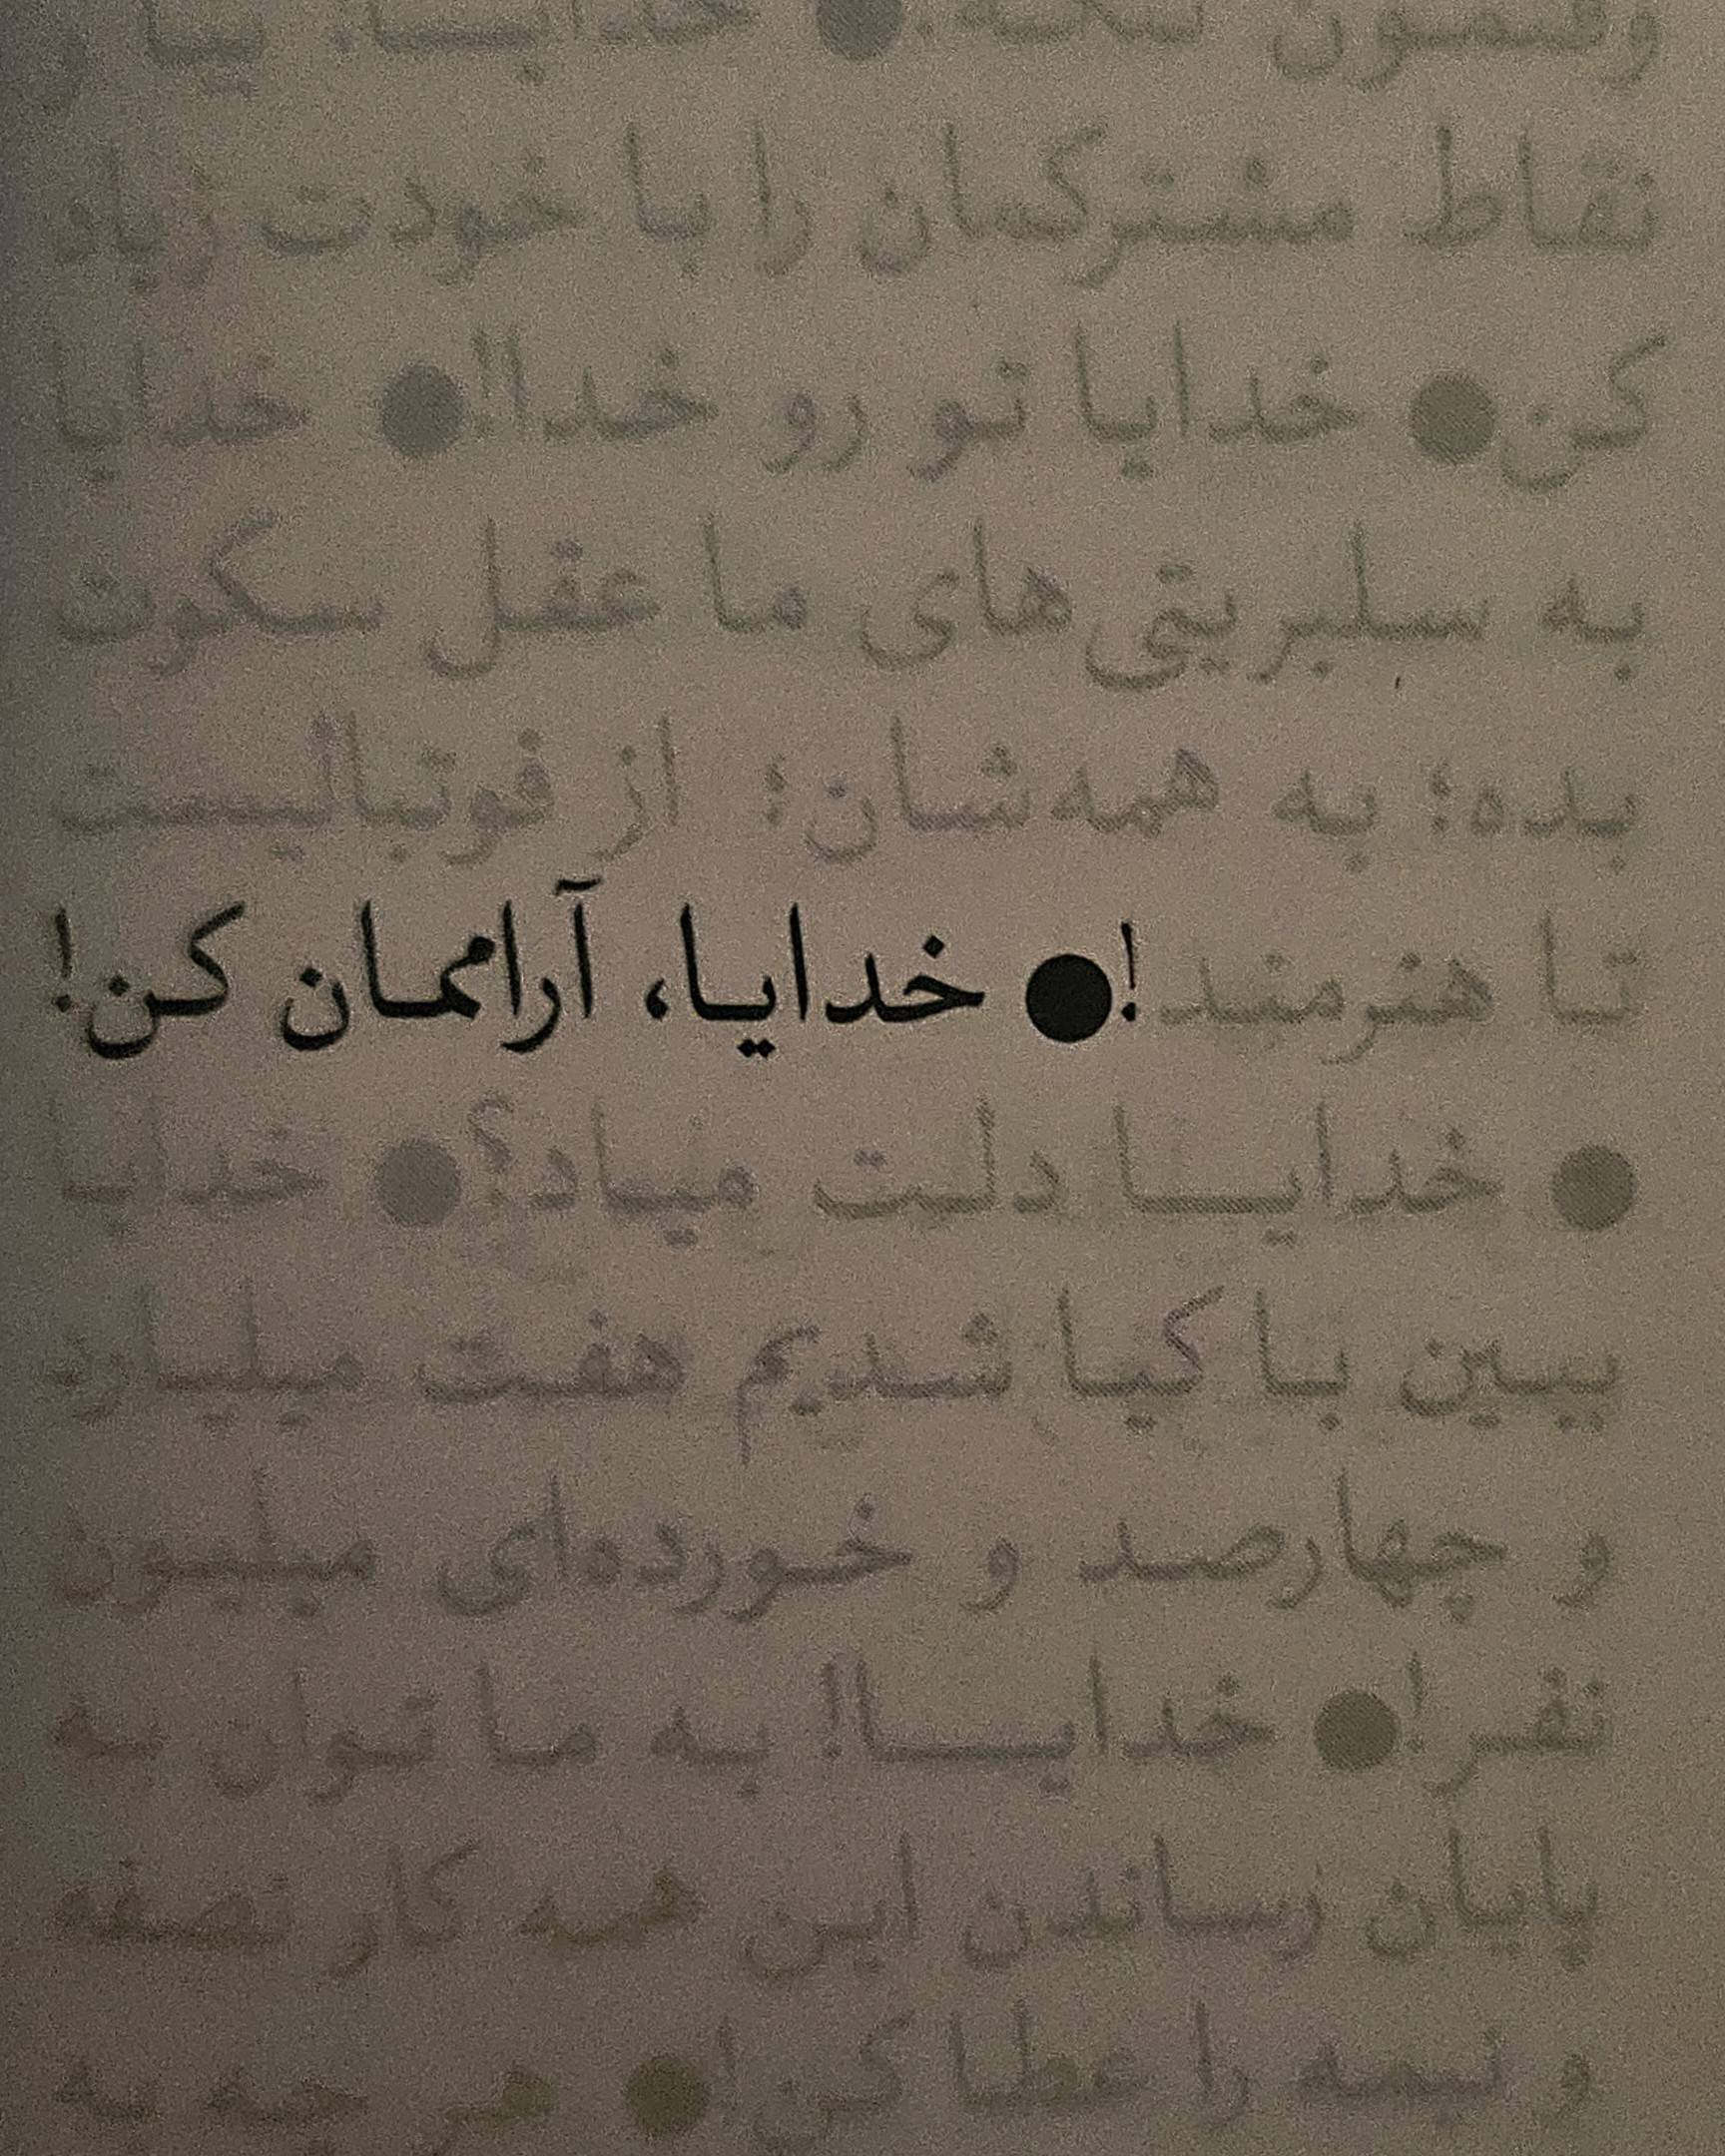 نقاط مشترکمان را با خودت زیاد
کن● خدایا تو رو خدا!!● خدایا
به سلبریتی‌های ما عقل سکوت
بده؛ به همه‌شان؛ از فوتبالیست
تا هنرمند!● خدایا، آراممان کن!
● خدایــا دلت میاد؟● خدایا
ببین با کیا شدیم هفت میلیارد
و چهارصد و خورده‌ای میلیون
نفر!● خدایــا! به ما توان به
پایان رساندن این همه کار نصفه
و نیمه را عطا کن!● هر چه به